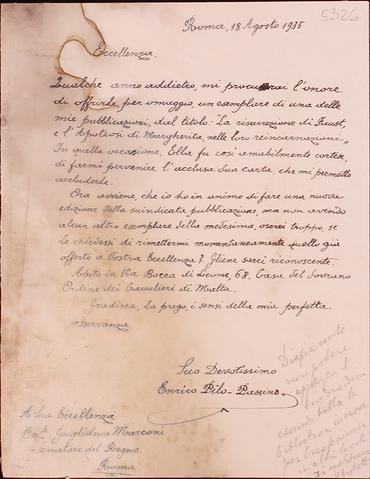 5326
Roma, 18 Agosto 1935
Eccellenza.
Qualche anno addietro, mi procurai l'onore
di offrirle, per omaggio, un esemplare di una delle
mie pubblicazioni, dal titolo: "La risurrezione di Faust,
e l'Apoteosi di Margherita, nelle loro reincarnazioni„
In quella occasione, Ella fu così amabilmente cortese,
di farmi pervenire l'acclusa Sua carta, che mi permetto
accluderle.
Ora avviene, che io ho in animo di fare una nuova
edizione della suindicata pubblicazione, ma non avendo
alcun altro esemplare della medesima, oserei troppo, se
le chiedessi di rimettermi momentaneamente quello già
offerto a Vostra Eccellenza? Gliene sarei riconoscente.
Abito in Via Bocca di Leone, 68. Casa del Sovrano
Ordine dei Cavalieri di Malta.
Gradisca, La prego, i sensi della mia perfetta
osservanza
Suo Devotissimo
Enrico Pilo-Passino
A Sua Eccellenza
On.le Guglielmo Marconi
Senatore del Regno.
Roma
Dispiacente
non potere
essendo tutta la
biblioteca
per